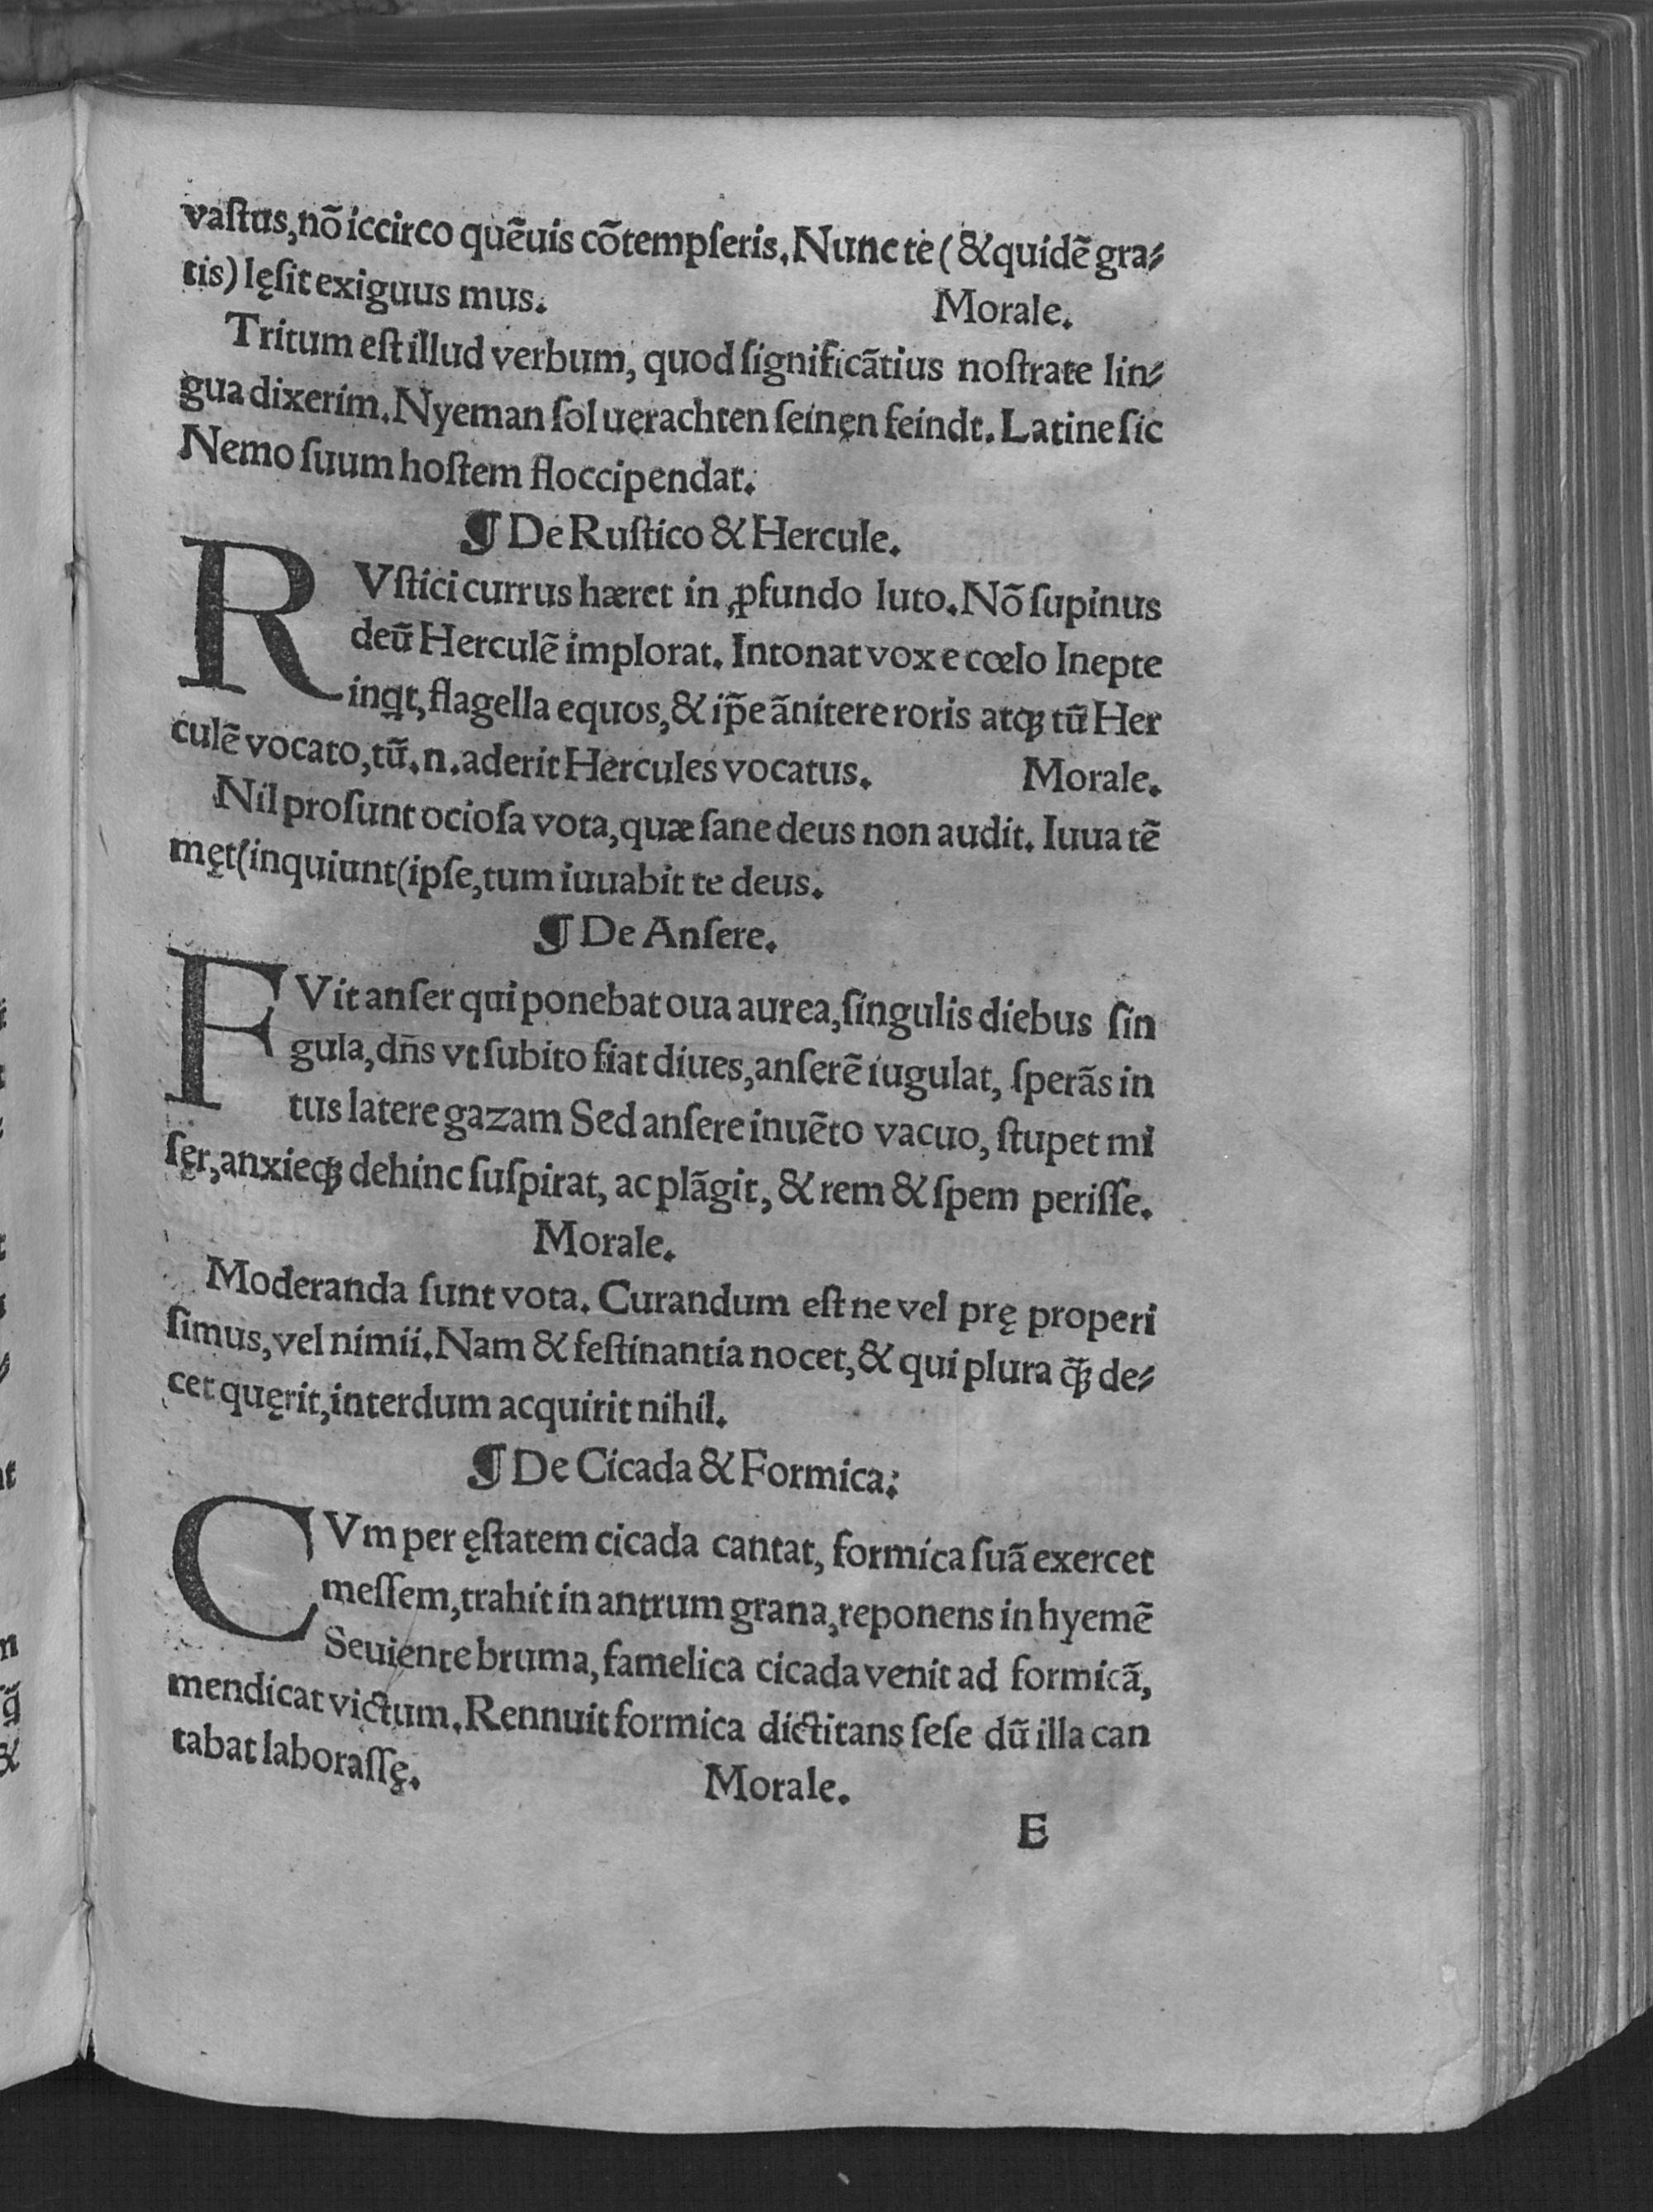 vaſtus,nō iccirco quēuis cōtempſeris.Nunc te (&quidē gra⸗
tis) lęſit exiguus mus. Morale.
Tritum eſt illud verbum, quod ſignificātius noſtrate lin⸗
gua dixerim.Nyeman ſol uerachten ſeinęn feindt.Latine ſic
Nemo ſuum hoſtem floccipendat.
¶ De Ruſtico & Hercule.
RVſtici currus hæret in ꝓfundo luto.Nō ſupinus
deū Herculē implorat. Intonat vox e cœlo Inepte
inqt,flagella equos,& ip̄e ānitere roris atqꝫ tū Her
culē vocato,tū.n.aderit Hercules vocatus. Morale.
Nil proſunt ocioſa vota,quæ ſane deus non audit. Iuua tē
męt(inquiunt(ipſe,tum iuuabit te deus.
¶ De Anſere.
FVit anſer qui ponebat oua aurea,ſingulis diebus ſin
gula,dn̄s vt ſubito fiat diues,anſerē iugulat, ſperās in
tus latere gazam Sed anſere inuēto vacuo, ſtupet mi
ſęr,anxieqꝫ dehinc ſuſpirat, ac plāgit, & rem & ſpem periſſe.
Morale.
Moderanda ſunt vota. Curandum eſt ne vel prę properi
ſimus,vel nimii.Nam & feſtinantia nocet,& qui plura q̄ꝫ de⸗
cet quęrit,interdum acquirit nihil.
¶ De Cicada & Formica:
CVm per ęſtatem cicada cantat, formica ſuā exercet
meſſem,trahit in antrum grana,reponens in hyemē
Seuiente bruma, famelica cicada venit ad formicā,
mendicat victum.Rennuit formica dictitans ſeſe dū illa can
tabat laboraſſę. Morale.
E